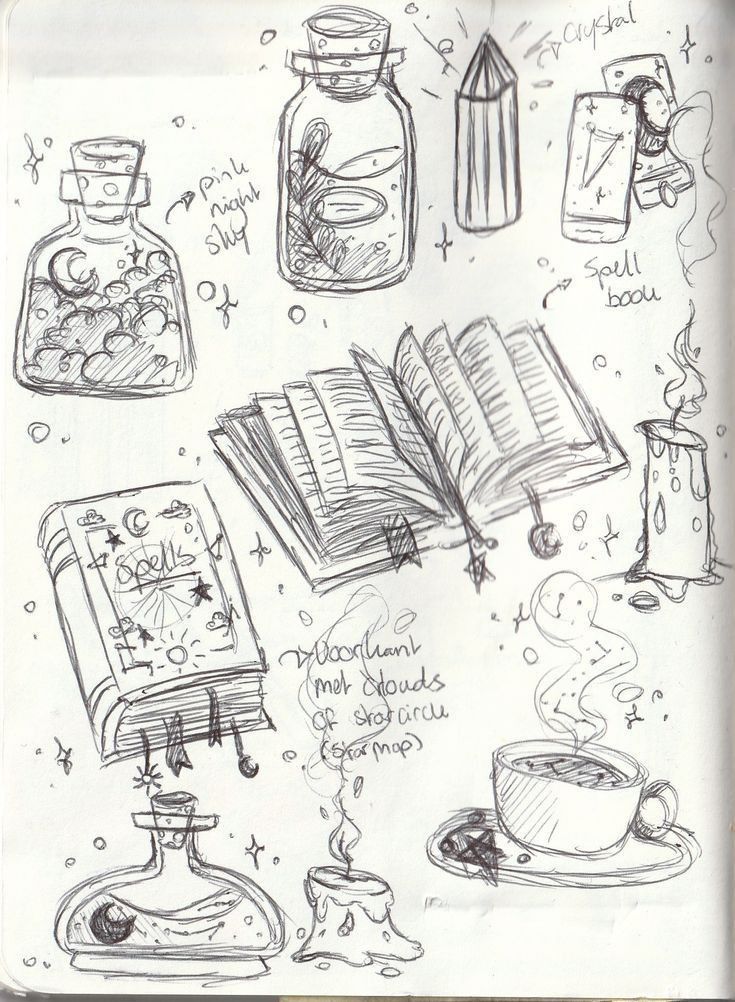 crystal
pink
night
sky
Spell
book
Spells
Voorkant
met clouds
of starcircle
(starmap)